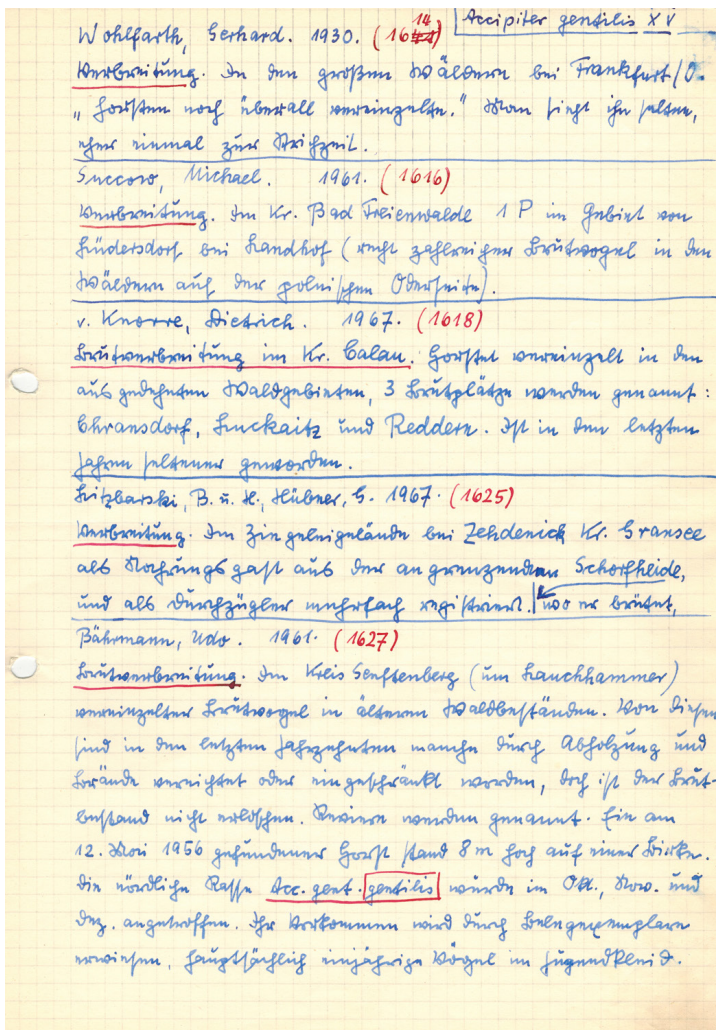 Accipiter gentilis XV
Wohlfarth, Gerhard. 1930. (1614)
Verbreitung. In den großen Wäldern bei Frankfurt/O.
„Horsten noch überall vereinzelte." Man sieht ihn selten,
eher einmal zur Strichzeit.
Succow, Michael. 1961. (1616)
Verbreitung. Im Kr. Bad Freienwalde 1 P im Gebiet von
Lüdersdorf bei Landhof (recht zahlreicher Brutvogel in den
Wäldern auf der polnischen Oderseite).
v. Knorre, Dietrich. 1967. (1618)
Brutverbreitung im Kr. Calau. Horstet vereinzelt in den
ausgedehnten Waldgebieten, 3 Brutplätze werden genannt:
Chransdorf, Luckaitz und Reddern. Ist in den letzten
Jahren seltener geworden.
Litzbarski, B. u. H., Hübner, G. 1967. (1625)
Verbreitung. Im Ziegeleigelände bei Zehdenick Kr. Gransee
als Nahrungsgast aus der angrenzenden Schorfheide,
und als Durchzügler mehrfach registriert. wo er brütet,
Bährmann, Udo. 1961. (1627)
Brutverbreitung. Im Kreis Senftenberg (um Lauchhammer)
vereinzelter Brutvogel in älteren Waldbeständen. Von diesen
sind in den letzten Jahrzehnten manche durch Abholzung und
Brände vernichtet oder eingeschränkt worden, doch ist der Brut-
bestand nicht erloschen. Reviere werden genannt. Ein am
12. Mai 1956 gefundener Horst stand 8 m hoch auf einer Birke.
Die nördliche Rasse Acc. gent. gentilis wurde im Okt., Nov. und
Dez. angetroffen. Ihr Vorkommen wird durch Belegexemplare
erwiesen, hauptsächlich einjährige Vögel im Jugendkleid.